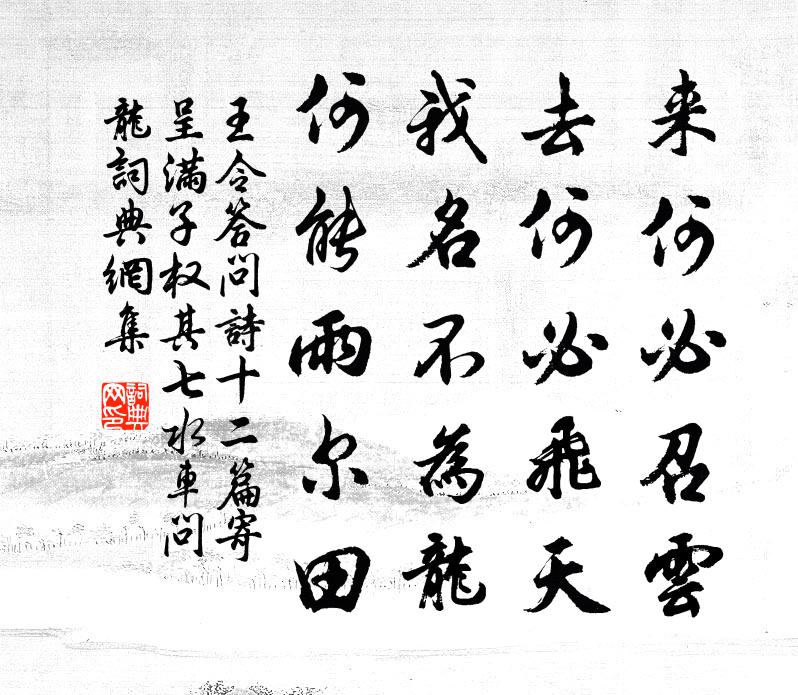 来何必召雲
去何必飛天
我名不為龍
何能雨尔田
王令答問詩十二篇寄
呈满子权其七水車問
龍詞典網集
詞典
网印